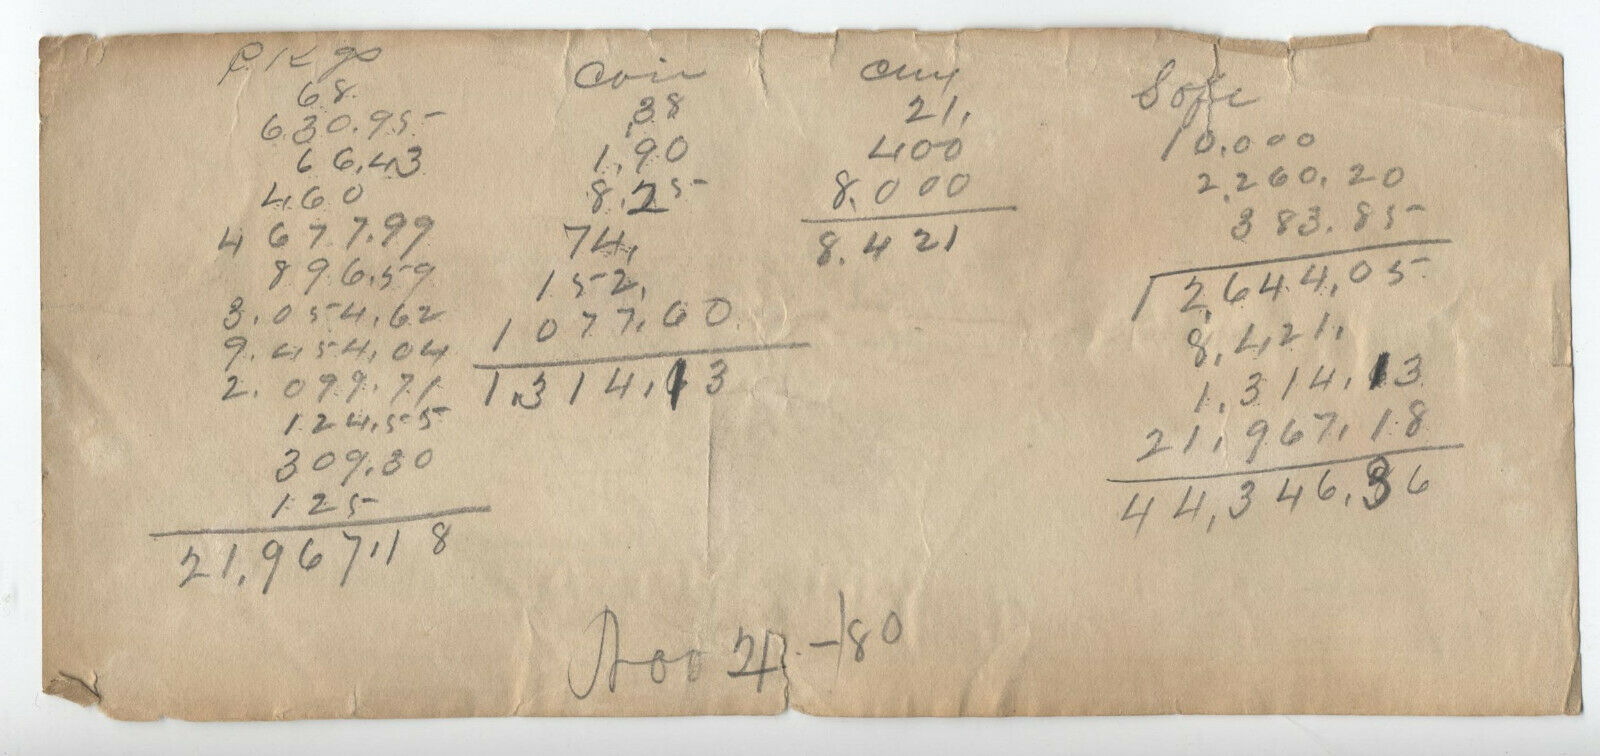 Pkgs
68.
630.95
66.43
460
4677.99
896.59
3.054.62
9.454.04
2.099.71
124.55
309.30
125
21,967.18
Coin
.38
1.90
8.25
74.
152.
1077.60
1,314.13
21.
400
8.000
8.421
Safe
10.000
2.260.20
383.85
12,644.05
8,421.
1,314.13
21,967.18
44,346.36